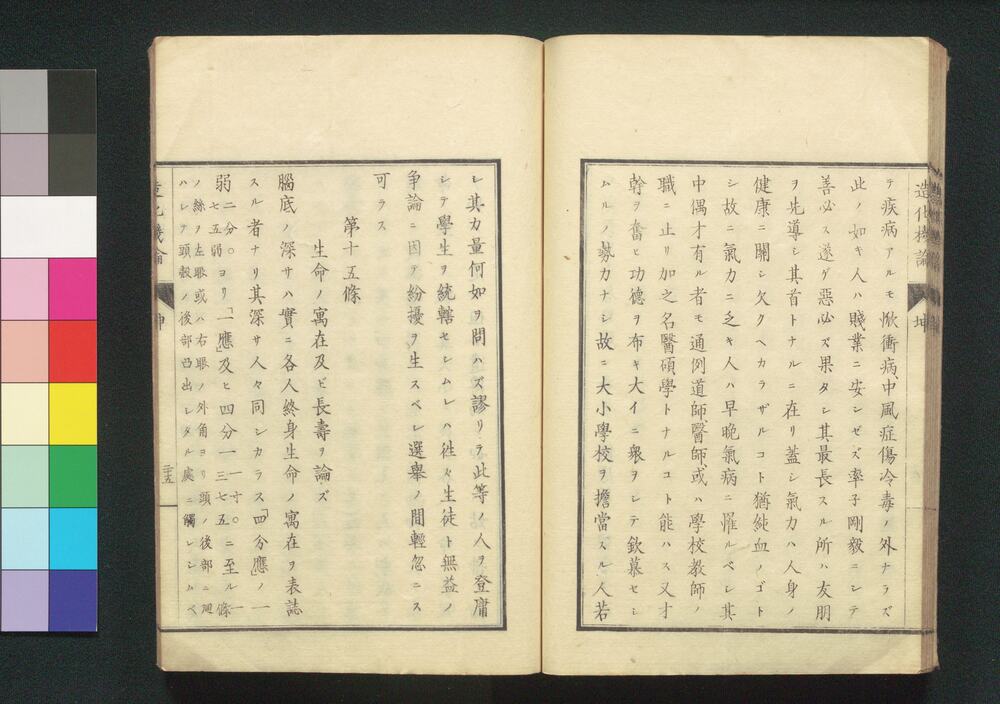 造化機論
坤
テ疾病アルモ惞衝病、中風症傷冷毒ノ外ナラズ
此ノ如キ人ハ賤業ニ安ンゼズ率子剛毅ニシテ
善必ス遂ゲ惡必ズ果タシ其最長スル所ハ友朋
ヲ先導シ其首トナルニ在リ蓋シ氣力ハ人身ノ
健康ニ關シ欠クヘカラザルコト猶純血ノゴト
シ故ニ氣力ニ乏キ人ハ早晩氣病ニ罹ルベシ其
中偶才有ル者モ通例道師、醫師、或ハ學校教師ノ
職ニ止リ加之名醫碩學トナルコト能ハス又才
幹ヲ奮ヒ功德ヲ布キ大イニ衆ヲシテ欽慕セシ
ムルノ勢力ナシ故ニ大小學校ヲ擔當スル人若
シ其力量何如ヲ問ハズ謬リテ此等ノ人ヲ登庸
シテ學生ヲ統轄セシムレハ徃々生徒ト無益ノ
争論ニ因テ紛擾ヲ生スベシ選擧ノ間輕忽ニス
可ラス
第十五條
生命ノ寓在及ビ長壽ヲ論ズ
腦底ノ深サハ實ニ各人終身生命ノ寓在ヲ表誌
スル者ナリ其深サ人々同シカラス「四分應」ノ一
弱二分〇七五弱ヨリ「一應」及ヒ四分一一寸〇一三七五ニ至ル一條
ノ絲ヲ左眼或ハ右眼ノ外角ヨリ頭ノ後部ニ廻
ハシテ頭殼ノ後部凸出シタル處ニ觸レシムベ
造化機論
坤
三十五